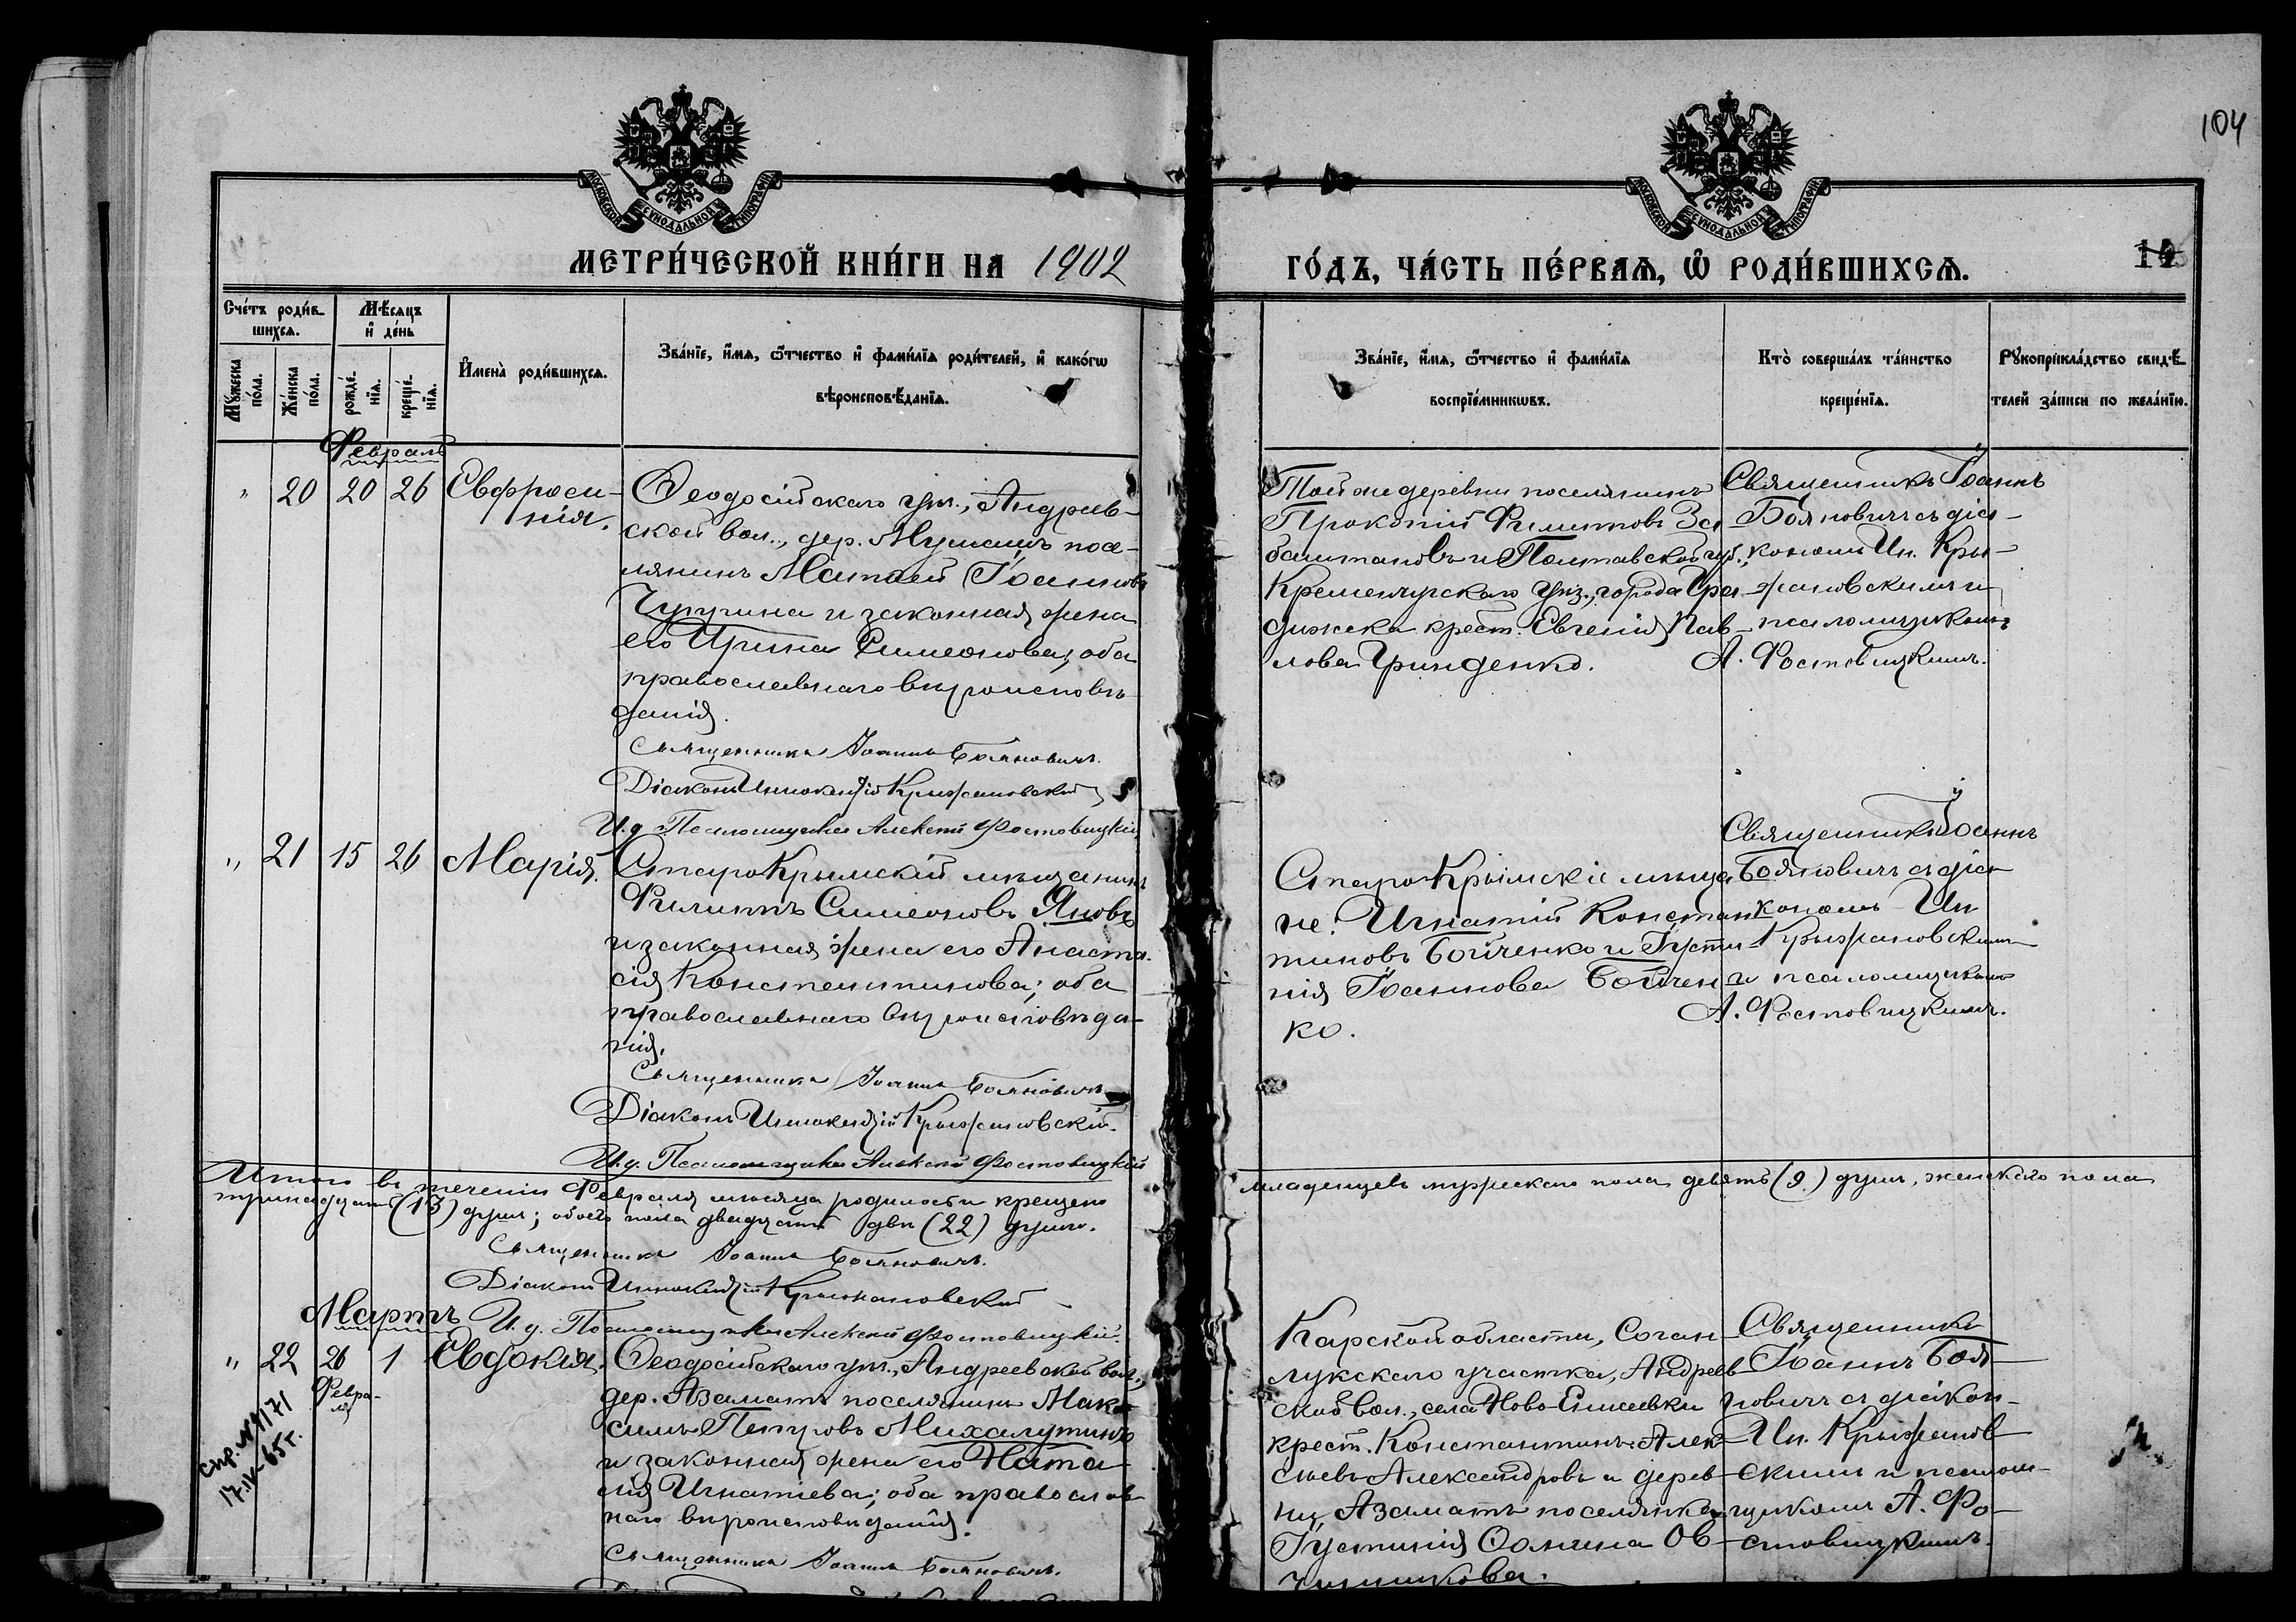 104
МОСКОВСКОЙ СУНОДАЛЬНОЙ ТИПОГРАФІИ
МОСКОВСКОЙ СУНОДАЛЬНОЙ ТИПОГРАФІИ
МЕТРИ́ЧЕСКОЙ КНИ́ГИ НА 1902
ГО́ДЪ, ЧА́СТЬ ПЕ́РВАѦ, Ѡ҆ РОДИ́ВШИХСѦ.
Сче́тъ роди́в-
шихсѧ.
Мѣ́сѧцъ
и҆ де́нь
Мꙋ́жеска по́ла.
Же́нска по́ла.
рожде́-
нїѧ.
креще́-
нїѧ.
И҆мена̀ роди́вшихсѧ.
Зва́нїе, и҆́мѧ, ѻ҆́тчество и҆ фами́лїѧ роди́телей, и҆ како́гѡ
вѣроисповѣ́данїѧ.
Зва́нїе, и҆́мѧ, ѻ҆́тчество и҆ фами́лїѧ
воспрїе́мникѡвъ.
Кто̀ соверша́лъ та́инство
креще́нїѧ.
Рꙋкоприкла́дство свидѣ́-
телей за́писи по жела́нїю.
Февраль
" 20 20 26 Евфроси-
нія.
Ѳеодосійскаго уѣз., Андреев-
ской вол., дер. посе-
лянинъ Матѳей Іоанновъ
и законная жена
его Ирина Симеонова; оба
православнаго вѣроисповѣ-
данія.
Священникъ Іоаннъ Бояновичъ.
Діаконъ Иннокентій Крыжановскій
И. д. Псаломщика Алексѣй Фостовицкій
Той же деревни поселянинъ
Прокопій Филиповъ За-
баштановъ и Полтавской губ.,
Кременчугскаго уѣз., города Гра-
дижска крест. Евгенія Пав-
лова Гринденко.
Священникъ Іоаннъ
Бояновичъ съ діа-
кономъ Ин. Кры-
жановскимъ и
псаломщикомъ
А. Фостовицкимъ.
" 21 15 26 Марія.
Старо Крымскій мѣщанинъ
Филиппъ Симеоновъ Яновъ
и законная жена его Анаста-
сія Константинова; оба
православнаго вѣроисповѣда-
нія.
Священникъ Іоаннъ Бояновичъ
Діаконъ Иннокентій Крыжановскій.
И. д. Псаломщика Алексѣй Фостовицкій
Старо-Крымскіе мѣща-
не: Игнатій Констан-
тиновъ Бойченко и Іусти-
нія Іоаннова Бойчен-
ко.
Священникъ Іоаннъ
Бояновичъ съ діа-
кономъ Ин.
Крыжановскимъ
и псаломщикомъ
А. Фостовицкимъ.
Итого въ теченіи Февраля мѣсяца родилось и крещено
младенцевъ мужескаго пола девять (9) душъ, женскаго пола
тринадцать (13) душъ; обоего пола двадцать двѣ (22) души.
Священникъ Іоаннъ Бояновичъ.
Діаконъ Иннокентій Крыжановскій
И. д. Псаломщика Алексѣй Фостовицкій.
Мартъ
" 22 26 1 Евдокія.
Февра-
ля
спр. № 1171
17.IV-65 г.
Ѳеодосійскаго уѣз., Андреевской вол.,
дер. Азаматъ поселянинъ Мак-
симъ Петровъ Михалутинъ
и законная жена его Ната-
лія Игнатіева; оба православ-
наго вѣроисповѣданія.
Священникъ Іоаннъ Бояновичъ.
Карской области, Соган-
лукскаго участка, Андреев-
ской вол., села Ново-Елисеевки
крест. Константинъ Алек-
сѣевъ Александровъ и дерев-
ни Азаматъ поселянка
Іустинія Ов-
чинникова.
Священникъ
Іоаннъ Боя-
новичъ съ діакон-
Ин. Крыжанов-
скимъ и псалом-
щикомъ А. Фо-
стовицкимъ.